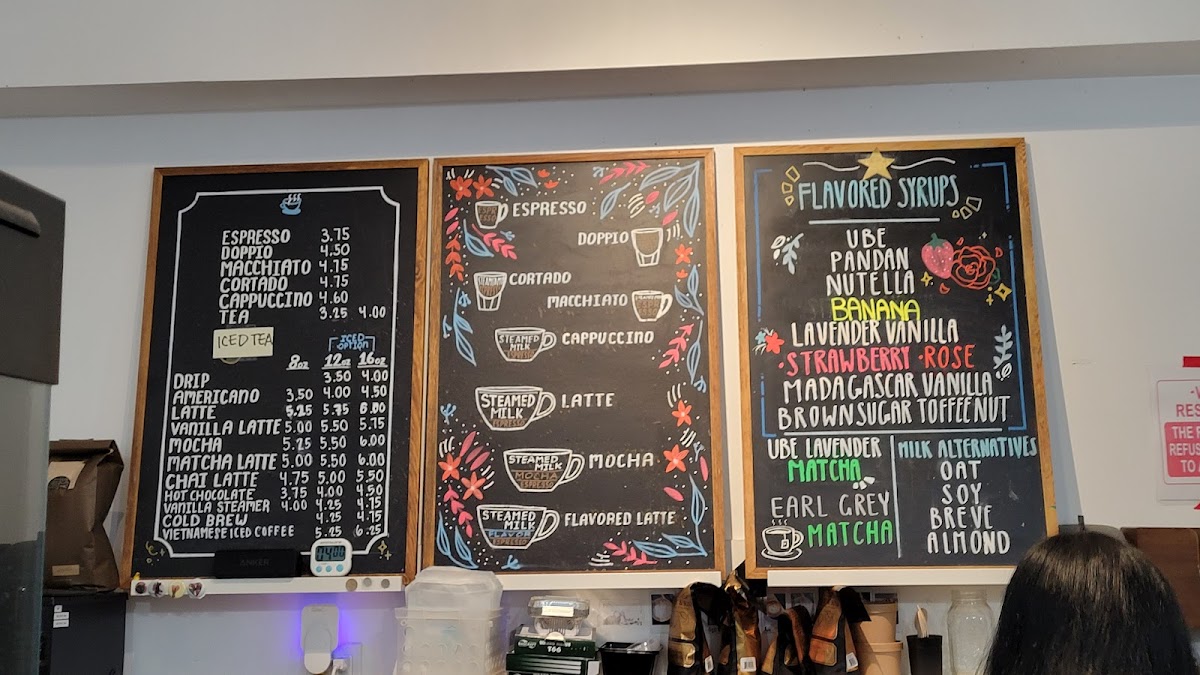 ESPRESSO 3.75
DOPPIO 4.50
MACCHIATO 4.75
CORTADO 4.75
CAPPUCCINO 4.60
TEA 3.25 4.00
ICED TEA
ICED OPTION
8oz 12oz 16oz
DRIP 3.50 4.00
AMERICANO 3.50 4.00 4.50
LATTE 5.25 5.75 6.00
VANILLA LATTE 5.00 5.50 5.75
MOCHA 5.25 5.50 6.00
MATCHA LATTE 5.00 5.50 6.00
CHAI LATTE 4.75 5.00 5.50
HOT CHOCOLATE 3.75 4.00 4.50
VANILLA STEAMER 4.00 4.25 4.75
COLD BREW 4.25 4.75
VIETNAMESE ICED COFFEE 5.25 6.25
ANKER
ESPRESSO
DOPPIO
CORTADO
MACCHIATO
STEAMED MILK ESPRESSO
CAPPUCCINO
STEAMED MILK ESPRESSO
LATTE
STEAMED MILK MOCHA ESPRESSO
MOCHA
STEAMED MILK FLAVOR ESPRESSO
FLAVORED LATTE
FLAVORED SYRUPS
UBE
PANDAN
NUTELLA
BANANA
LAVENDER VANILLA
STRAWBERRY · ROSE
MADAGASCAR VANILLA
BROWN SUGAR TOFFEE NUT
UBE LAVENDER
MATCHA
EARL GREY
MATCHA
MILK ALTERNATIVES
OAT
SOY
BREVE
ALMOND
RES
THE
REFUS
TO